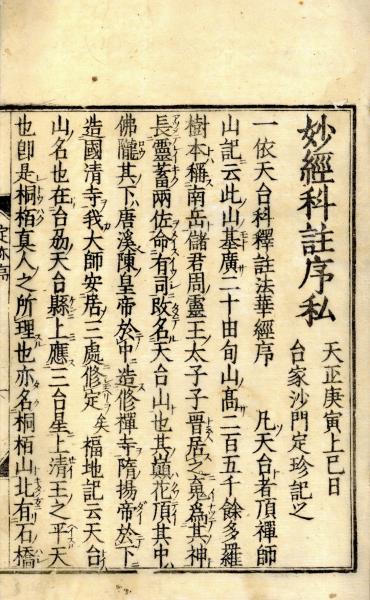 妙經科註序私
天正庚寅上巳日
台家沙門定珍記之
一依天台科釋註法華經序　凡天台者頂禪師
山記云此山基廣二十由旬山髙二百五千餘多羅
樹本稱南岳儲君周靈王太子子晋居之䰟爲其神
長靈蓄兩佐命有司改名天台山也其巔花頂其中
佛隴其下唐溪陳皇帝於中造修禪寺隋揚帝於下
造國清寺我大師安居三處修定矣　福地記云天台
山名也在台刕天台縣上應三台星上清王之平天
也即是桐栢真人之所理也亦名桐栢山北有石橋